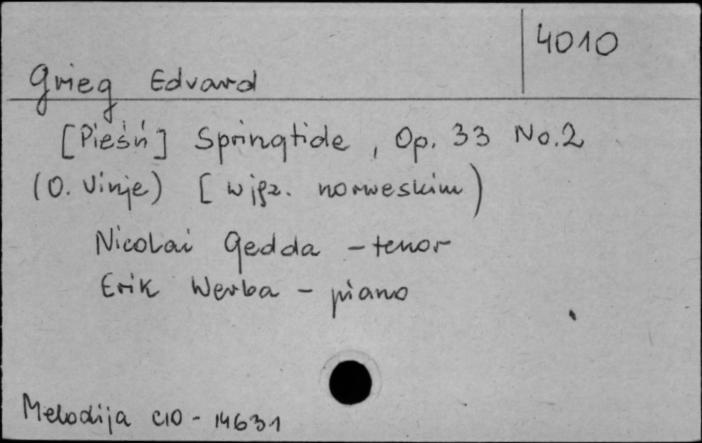 4010
Grieg Edvard
[Pieśń] Springtide, Op. 33 No.2
(O. Vinje) [w jęz. norweskim)
Nicolai Gedda - tenor
Erik Werba - piano
Melodija C10 - 14631